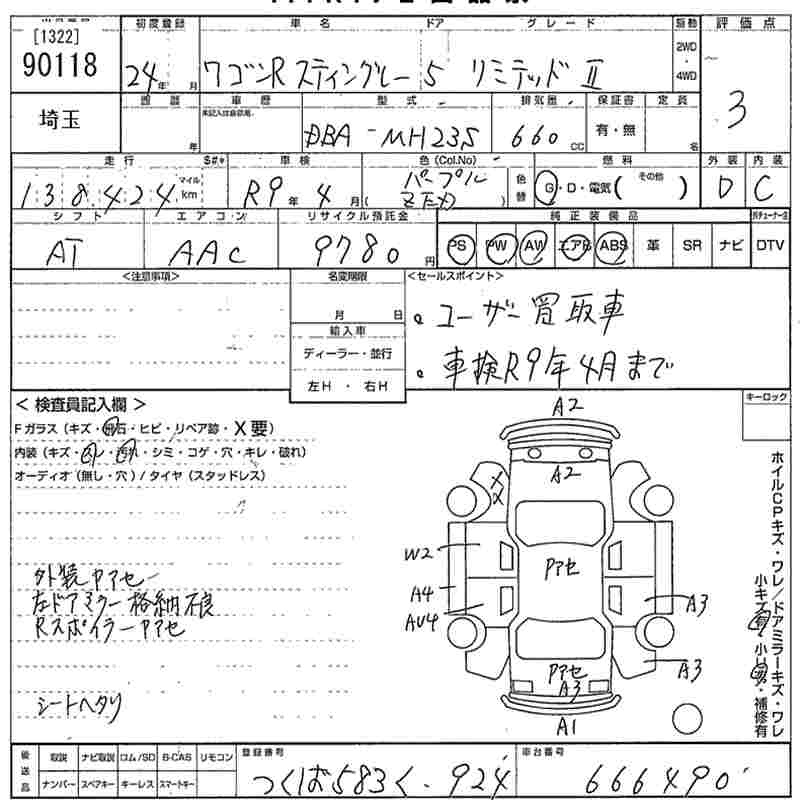 [1322]
90118
初度登録
車名
ドア
グレード
駆動
評価点
24年 月
ワゴンR スティングレー 5 リミテッドⅡ
2WD
4WD
埼玉
車歴
型式
排気量
保証書
定員
3
未記入は自家用。
年
DBA-MH23S
660cc
有・無
名
走行
車検
色(Col.No)
燃料
外装
内装
138,424
マイル
km
R9年 4月
パープル
ZTカ
色替
G・D・電気(その他)
D
C
シフト
エアコン
リサイクル預託金
純正装備品
AT
AAC
9780円
PS PW AW エアB ABS 革 SR ナビ DTV
<注意事項>
名変期限
月 日
輸入車
ディーラー・並行
左H・右H
<セールスポイント>
。ユーザー買取車
。車検R9年4月まで
<検査員記入欄>
Fガラス(キズ・飛石・ヒビ・リペア跡・X要)
内装(キズ・スレ・汚れ・シミ・コゲ・穴・キレ・破れ)
オーディオ(無し・穴)/タイヤ(スタッドレス)
外装ヤアセー
左ドアミラー格納不良
Rスポイラーヤアセ
シートヘタリ
キーロック
A2
A2
XX
W2
A4
AU4
ヤアセ
A3
A3
ヤアセ
A3
A1
ホイルCPキズ・ワレ/ドアミラーキズ・ワレ
小キズ有・小凹有・補修有
後送品
取説 ナビ取説 ロム/SD B-CAS リモコン
ナンバー スペアキー キーレス スマートキー
登録番号
つくば583く・924
車台番号
666490